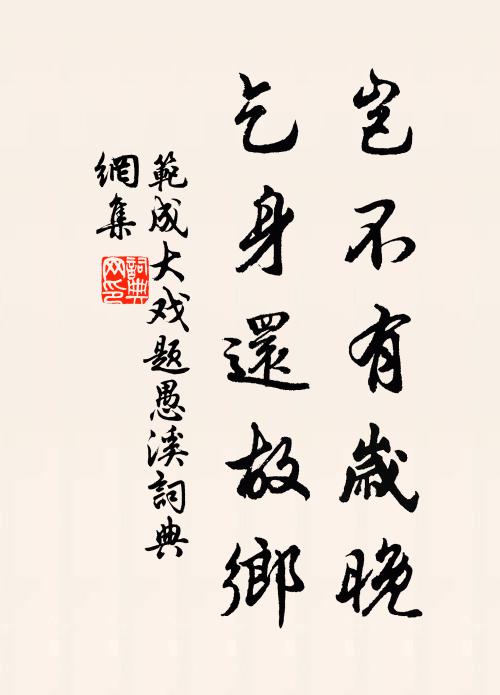 豈不有歲晚
乞身還故鄉
範成大戏題愚溪詞典
網集
詞典
网印